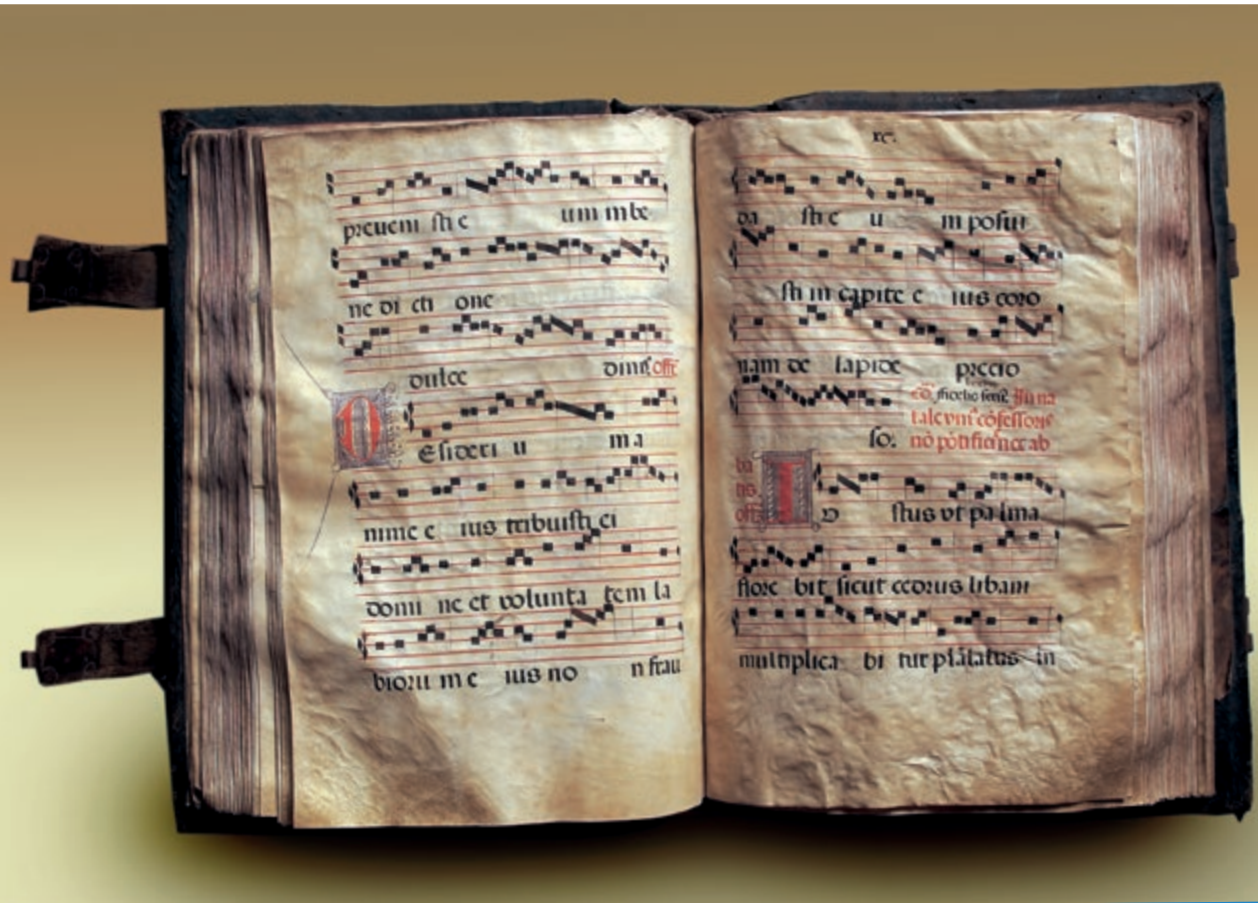 preueni sti e um in be
ne di cti one
dulce dinis offr
D Esideri u m a
nime e ius tribuisti ei
domi ne et volunta tem la
bioru m e ius no n frau
xc.
da sti e u m posui
sti in capite e ius coro
nam de lapide precio
so.
talevni⁹ cōfessoris
nō pōtifici nec ab
I V stus vt palma
flore bit sicut cedrus libani
multiplica bi tur in